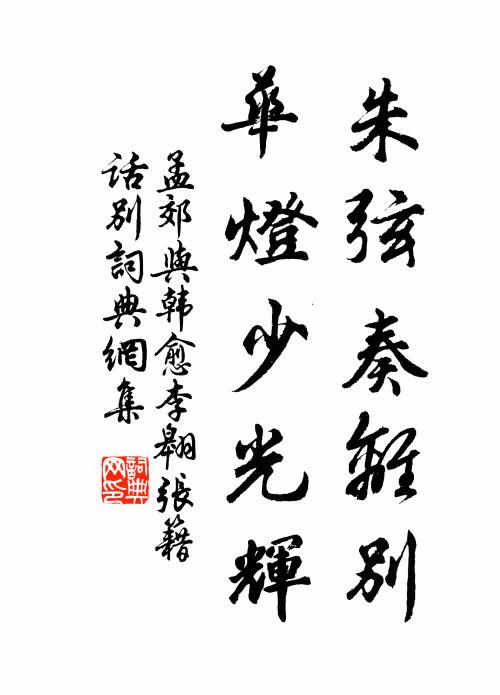 朱弦奏離別
華燈少光輝
孟郊與韩愈李翱張籍
话别詞典網集
詞典
网印